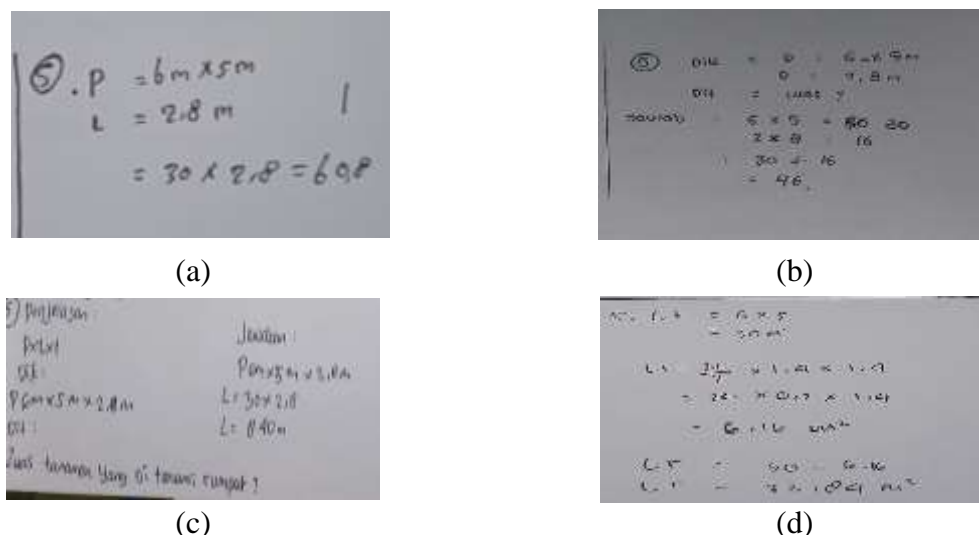 ⑤. P = 6m x 5m
L = 2,8 m
= 30 x 2,8 = 60,8
(a)
⑤ Dik = P : 6 m x 5m
: 2,8 m
Dit = luas ?
Jawab : 6 x 5 = 30
2 x 8 = 16
: 30 + 16
= 46
(b)
5) Penjelasan:
PxLxt
Dik:
P 6m x 5m x 2,8m
Dit:
Luas tanaman yang di tanami rumput ?
Jawaban:
P 6m x 5m x 2,8m
L = 30 x 2,8
L = 840 m
(c)
= 6 x 5
= 30 m
x 1.4 x 1.4
= 22 x 0.2 x 1.4
= 6.16 cm²
= 30 - 6.16
(d)